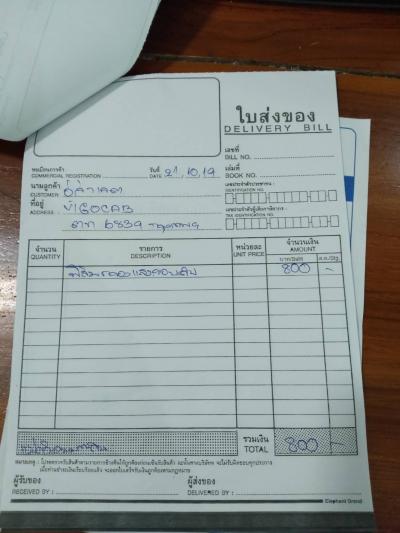 ใบส่งของ
DELIVERY BILL
เลขที่
BILL NO.
ทะเบียนการค้า
COMMERCIAL REGISTRATION
วันที่
DATE 21,10,19
เล่มที่
BOOK NO.
นามลูกค้า
CUSTOMER
เลขประจำตัวประชาชน
IDENTIFICATION NO.
ที่อยู่
ADDRESS VIGOCAB
6839
เลขประจำตัวผู้เสียภาษีอากร
TAX IDENTIFICATION NO.
จำนวน
QUANTITY
รายการ
DESCRIPTION
หน่วยละ
UNIT PRICE
จำนวนเงิน
AMOUNT
บาท/Baht
ส.ต./Stg.
800 -
รวมเงิน
TOTAL
800 -
ผู้รับของ
RECEIVED BY :
ผู้ส่งของ
DELIVERED BY :
Elephant Brand